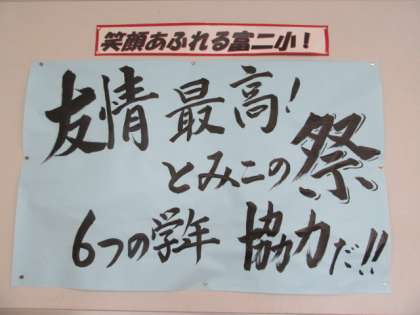 笑顔あふれる富二小！
友情最高！
とみこの祭
6つの学年 協力だ!!